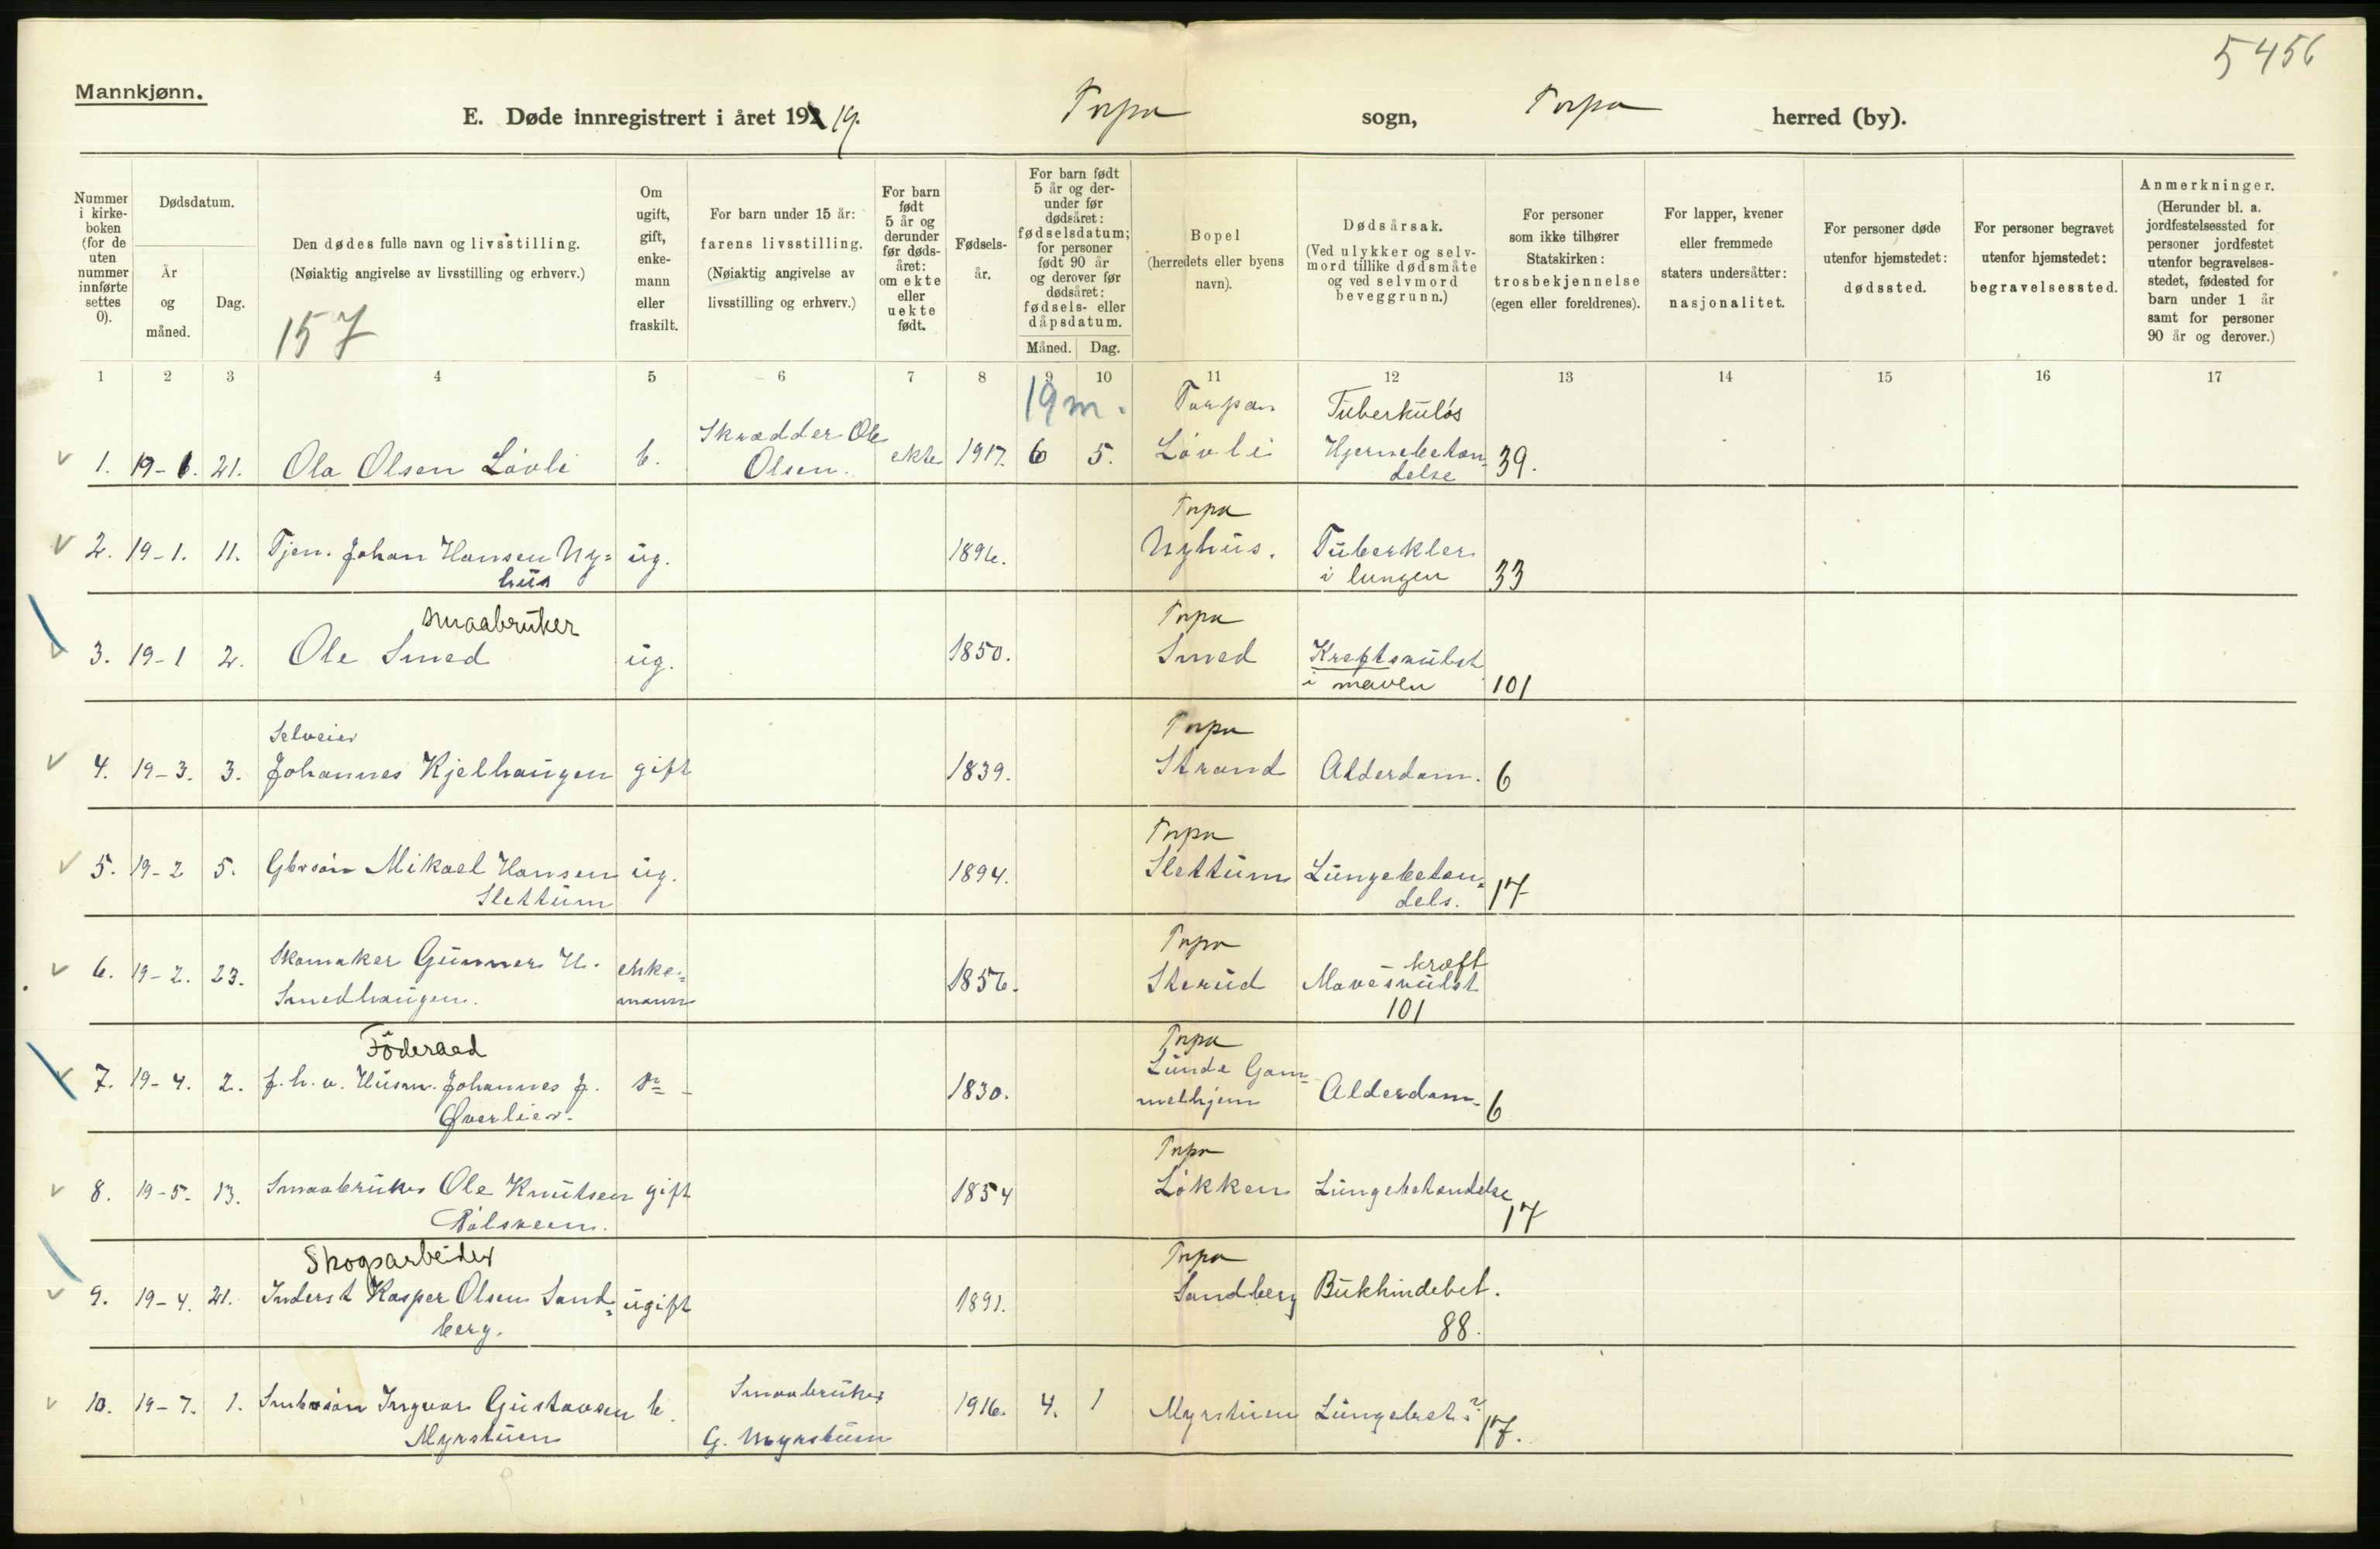 5456
Mannkjønn.
E. Døde innregistrert i året 1919. Torpa sogn, Torpa herred (by).
Nummer i kirke-boken (for de uten nummer innførte settes 0).
Dødsdatum.
År og måned.
Dag.
Den dødes fulle navn og livsstilling.
(Nøiaktig angivelse av livsstilling og erhverv.)
157
Om ugift, gift, enke-mann eller fraskilt.
For barn under 15 år:
farens livsstilling.
(Nøiaktig angivelse av livsstilling og erhverv.)
For barn født 5 år og derunder før døds-året: om ekte eller uekte født.
Fødsels-år.
For barn født 5 år og der-under før dødsåret: fødselsdatum; for personer født 90 år og derover før dødsåret: fødsels- eller dåpsdatum.
Måned. Dag.
Bopel
(herredets eller byens navn).
Dødsårsak.
(Ved ulykker og selv-mord tillike dødsmåte og ved selvmord beveggrunn.)
For personer som ikke tilhører Statskirken: trosbekjennelse (egen eller foreldrenes).
For lapper, kvener eller fremmede staters undersåtter: nasjonalitet.
For personer døde utenfor hjemstedet: dødssted.
For personer begravet utenfor hjemstedet: begravelsessted.
Anmerkninger.
(Herunder bl. a. jordfestelsessted for personer jordfestet utenfor begravelses-stedet, fødested for barn under 1 år samt for personer 90 år og derover.)
1 2 3 4 5 6 7 8 9 10 11 12 13 14 15 16 17
19 m. Torpa Tuberkuløs
1. 19-1. 21. Ola Olsen Løvli b. Skrædder Ole Olsen. ekte 1917. 6 5. Løvli Hjernebetændelse 39.
Torpa
2. 19-1. 11. Tjen. Johan Hansen Ny=hus ug. 1896. Nyhus. Tuberkler i lungen 33
smaabruker Torpa
3. 19-1 2. Ole Smed ug. 1850. Smed Kreftsvulst i maven 101
Selveier Torpa
4. 19-3. 3. Johannes Kjelhaugen gift 1839. Strand Alderdom. 6
Torpa
5. 19-2 5. Gbrsøn Mikael Hansen Slettum ug. 1894. Slettum Lungebetændels. 17
Torpa kræft
6. 19-2. 23. Skomaker Gunner H. Smedhaugen. enke=mann 1856. Sterud Mavesvulst 101
Föderaad Torpa
7. 19-4. 2. f. h. v. Husm. Johannes J. Øverlier. 1830. Lunde Gam=melhjem Alderdom. 6
Torpa
8. 19-5. 13. Smaabruker Ole Knutsen gift 1854 Løkken Lungebetændelse 17
Skogsarbeider Torpa
9. 19-4. 21. Inderst Kasper Olsen Sand=berg. ugift 1891. Sandberg Bukhindebet. 88.
10. 19-7. 1. Smbrsøn Ingvar Gustavsen Myrstuen b. Smaabruker G. Myrstuen 1916. 4. 1 Myrstuen Lungebet. 17.